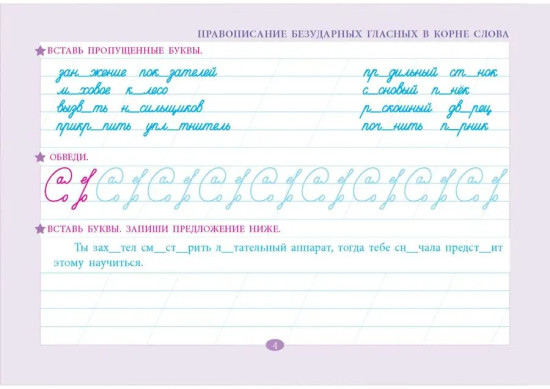 ПРАВОПИСАНИЕ БЕЗУДАРНЫХ ГЛАСНЫХ В КОРНЕ СЛОВА
ВСТАВЬ ПРОПУЩЕННЫЕ БУКВЫ.
зан_жение пок_зателей пр_дильный ст_нок
м_ховое к_лесо с_сновый п_нёк
вызв_ть н_сильщиков р_скошный дв_рец
прикр_пить упл_тнитель поч_нить п_рник
ОБВЕДИ.
ВСТАВЬ БУКВЫ. ЗАПИШИ ПРЕДЛОЖЕНИЕ НИЖЕ.
Ты зах__тел см__ст__рить л__тательный аппарат, тогда тебе сн__чала предст__ит
этому научиться.
4